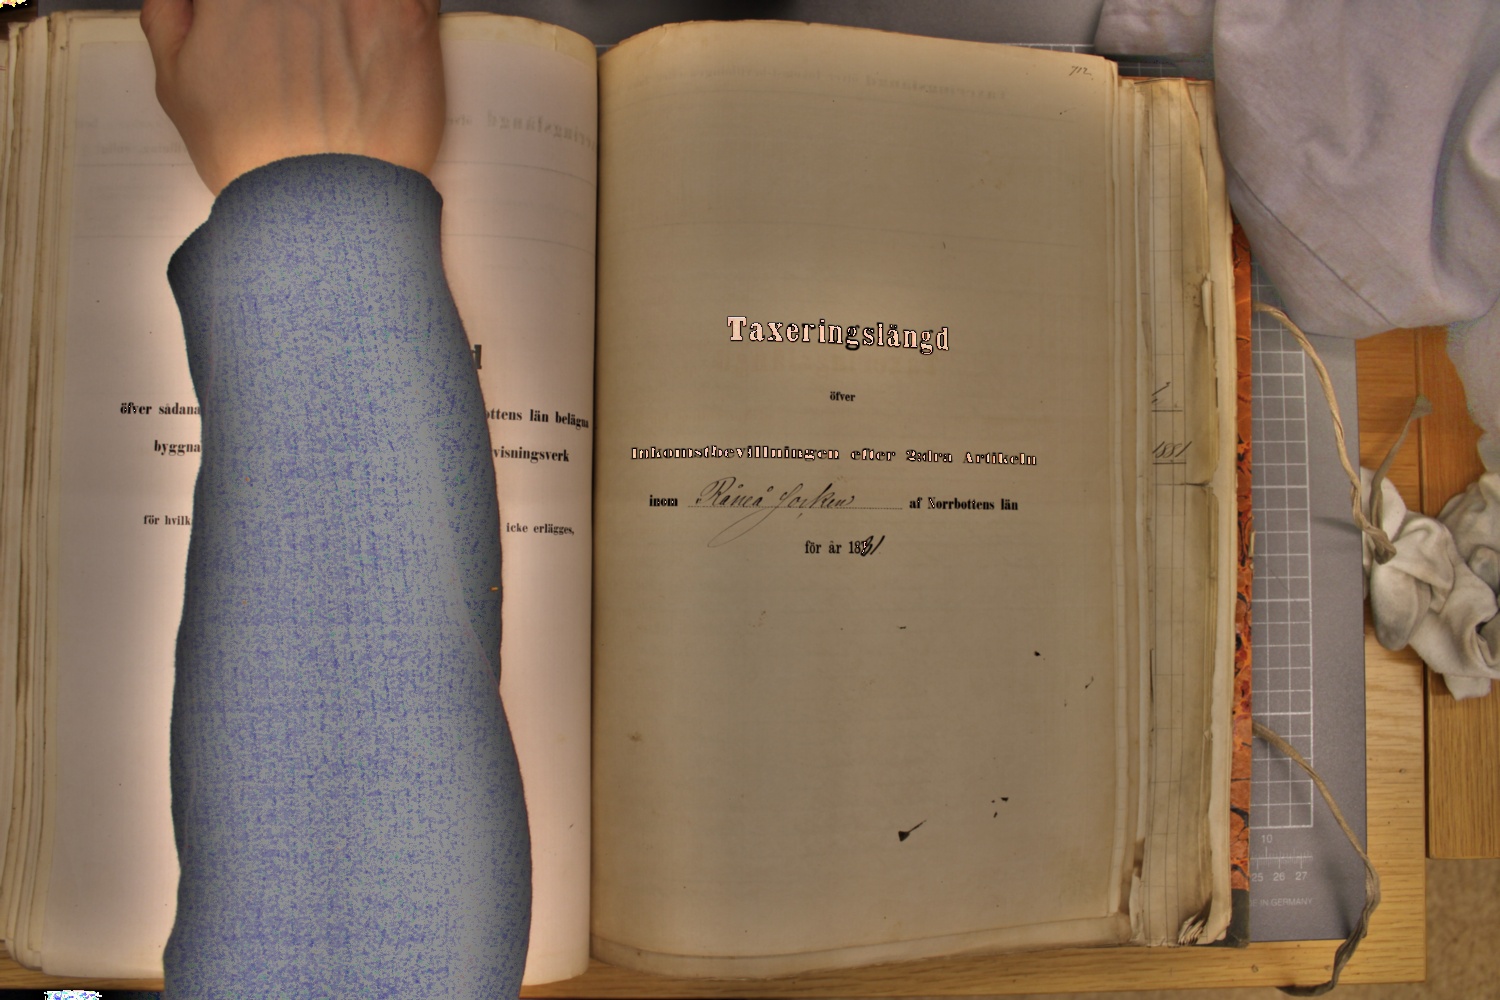 öfver sådana
ottens län belägna
byggna
visningsverk
för hvilk
icke erlägges.
712.
Taxeringslängd
öfver
Inkomstbevillningen efter 2:dra Artikeln
inom Råneå Socken af Norrbottens län
för år 1881
1881
10
25 26 27
IN GERMANY